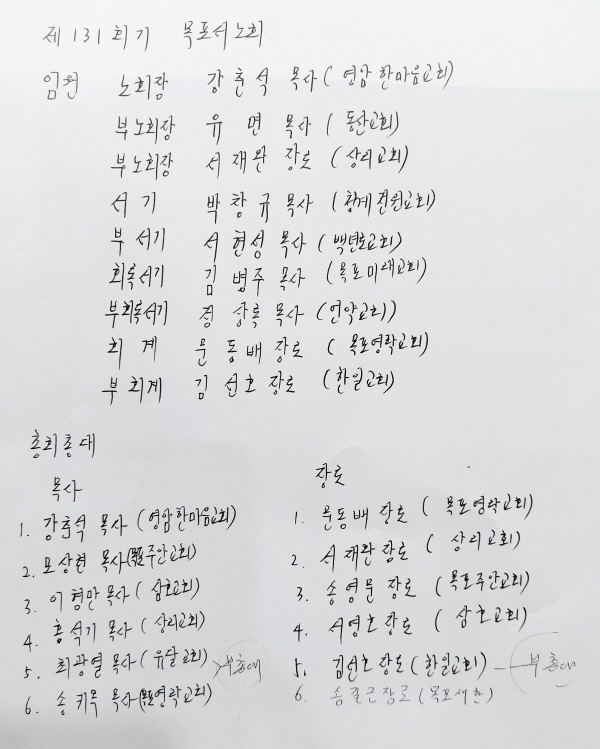 제 131회기 목포서노회
임원 노회장 강춘석 목사 (영암 한마음교회)
부노회장 유 면 목사 (동산교회)
부노회장 서재완 장로 (상리교회)
서기 박창규 목사 (청계전원교회)
부서기 서현성 목사 (백년로교회)
회록서기 김병주 목사 (목포미래교회)
부회록서기 정상록 목사 (언약교회)
회계 문동배 장로 (목포영락교회)
부회계 김선호 장로 (한일교회)
총회총대
목사
1. 강춘석 목사 (영암한마음교회)
2. 모상현 목사 (목포주안교회)
3. 이형만 목사 (삼호교회)
4. 홍석기 목사 (상리교회)
5. 최광열 목사 (유달교회) 부총대
6. 송귀옥 목사 (목포연락교회)
장로
1. 문동배 장로 (목포영락교회)
2. 서재완 장로 (상리교회)
3. 송영문 장로 (목포주안교회)
4. 서영호 장로 (삼호교회)
5. 김선호 장로 (한일교회) - 부총대
6. 장로 (목포새한)